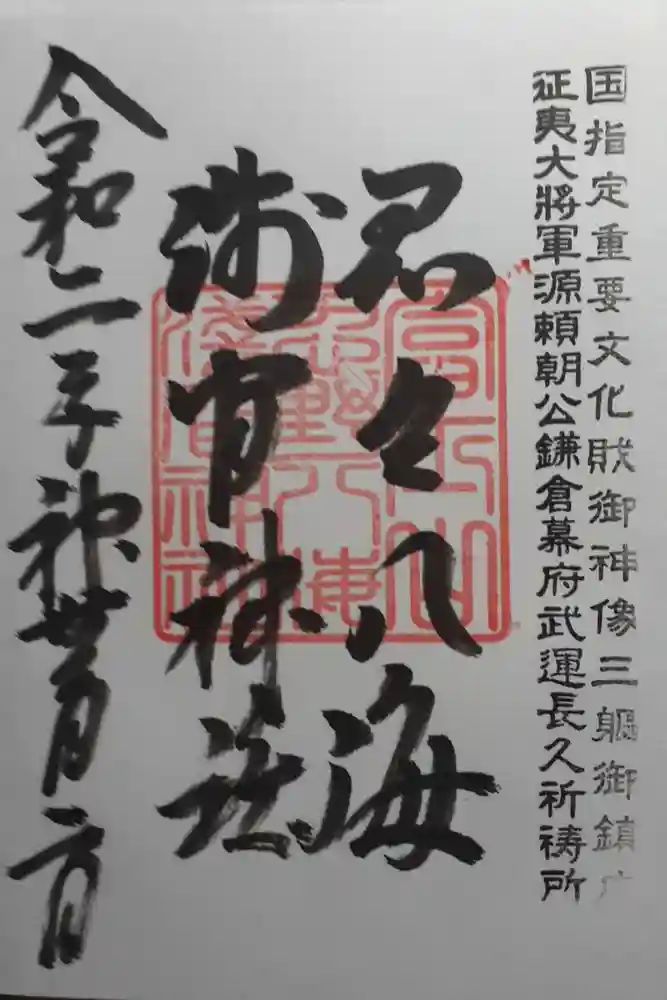 国指定重要文化財御神像三躯御鎮
征夷大將軍源頼朝公鎌倉幕府武運長久祈祷所
忍野八海
浅間神社
令和二子神無月二日